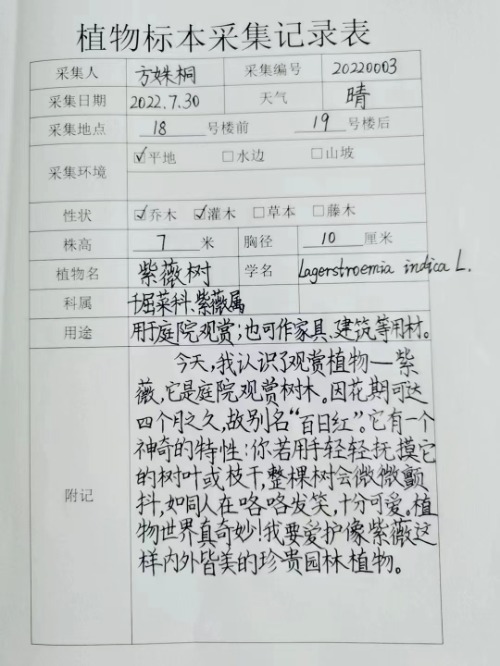 植物标本采集记录表
采集人 方姝桐 采集编号 20220003
采集日期 2022.7.30 天气 晴
采集地点 18 号楼前 19 号楼后
采集环境 ☑平地 □水边 □山坡
性状 ☑乔木 ☑灌木 □草本 □藤木
株高 7 米 胸径 10 厘米
植物名 紫薇树 学名 Lagerstroemia indica L.
科属 千屈菜科、紫薇属
用途 用于庭院观赏;也可作家具、建筑等用材。
附记
今天,我认识了观赏植物—紫
薇,它是庭院观赏树木。因花期可达
四个月之久,故别名“百日红”。它有一个
神奇的特性:你若用手轻轻抚摸它
的树叶或枝干,整棵树会微微颤
抖,如同人在咯咯发笑,十分可爱。植
物世界真奇妙!我要爱护像紫薇这
样内外皆美的珍贵园林植物。